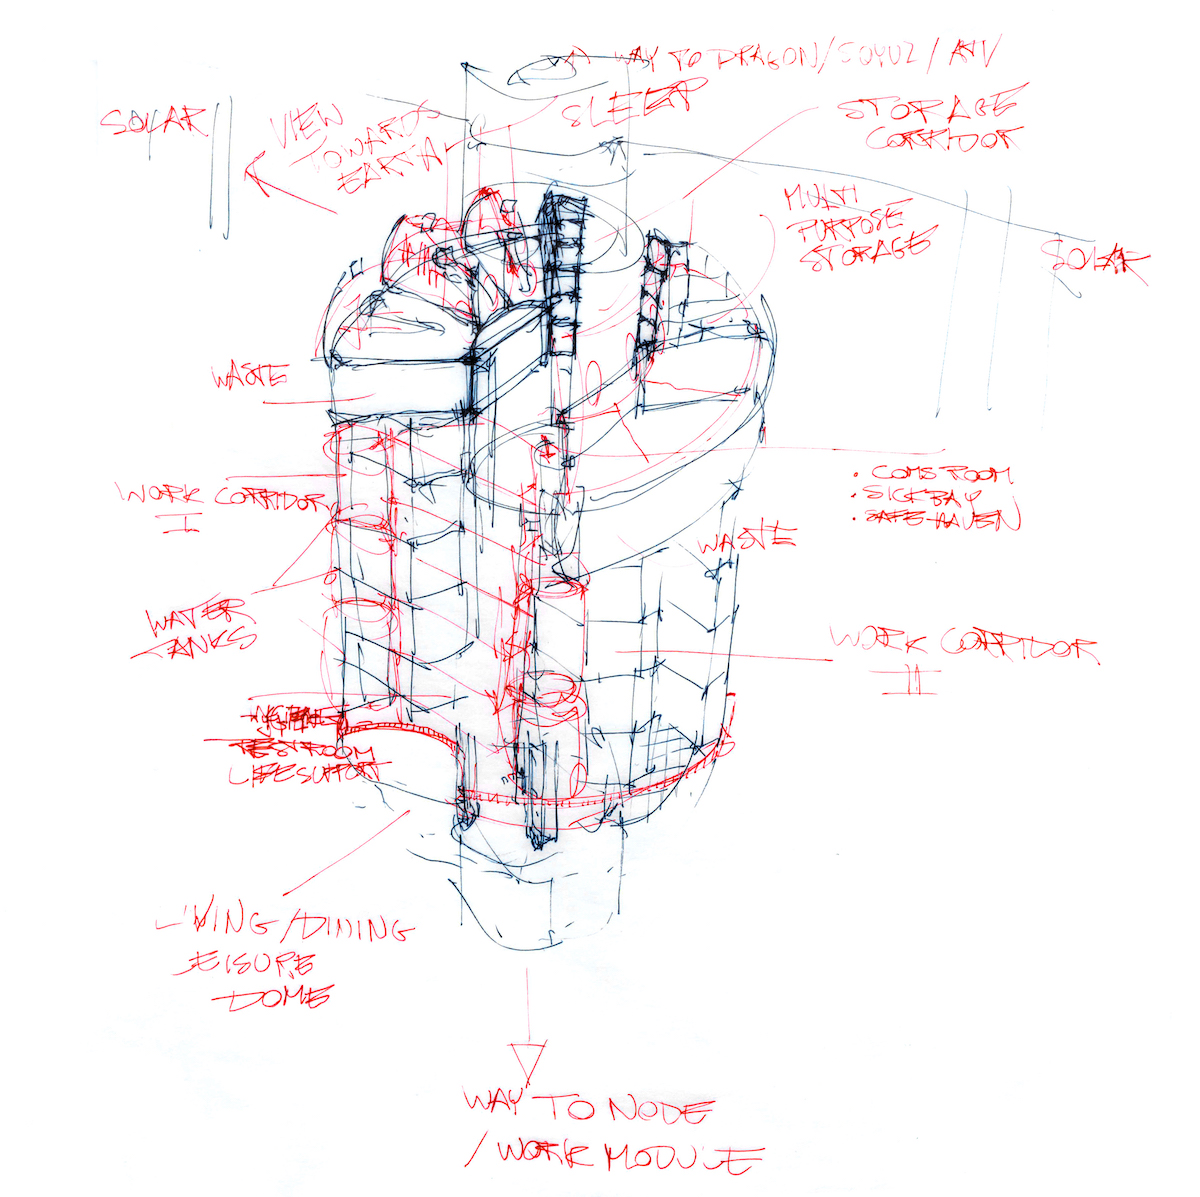 WAY TO DRAGON/SOYUZ/ATV
SLEEP
SOLAR
VIEW
TOWARDS
EARTH
STORAGE
CORRIDOR
MULTI
PURPOSE
STORAGE
SOLAR
WASTE
WORK CORRIDOR
I
WATER
TANKS
• COMS ROOM
• SICKBAY
• SAFE HAVEN
WASTE
WORK CORRIDOR
II
TEST ROOM
LIFE SUPPORT
LIVING/DINING
LEISURE
DOME
WAY TO NODE
/WORK MODULE